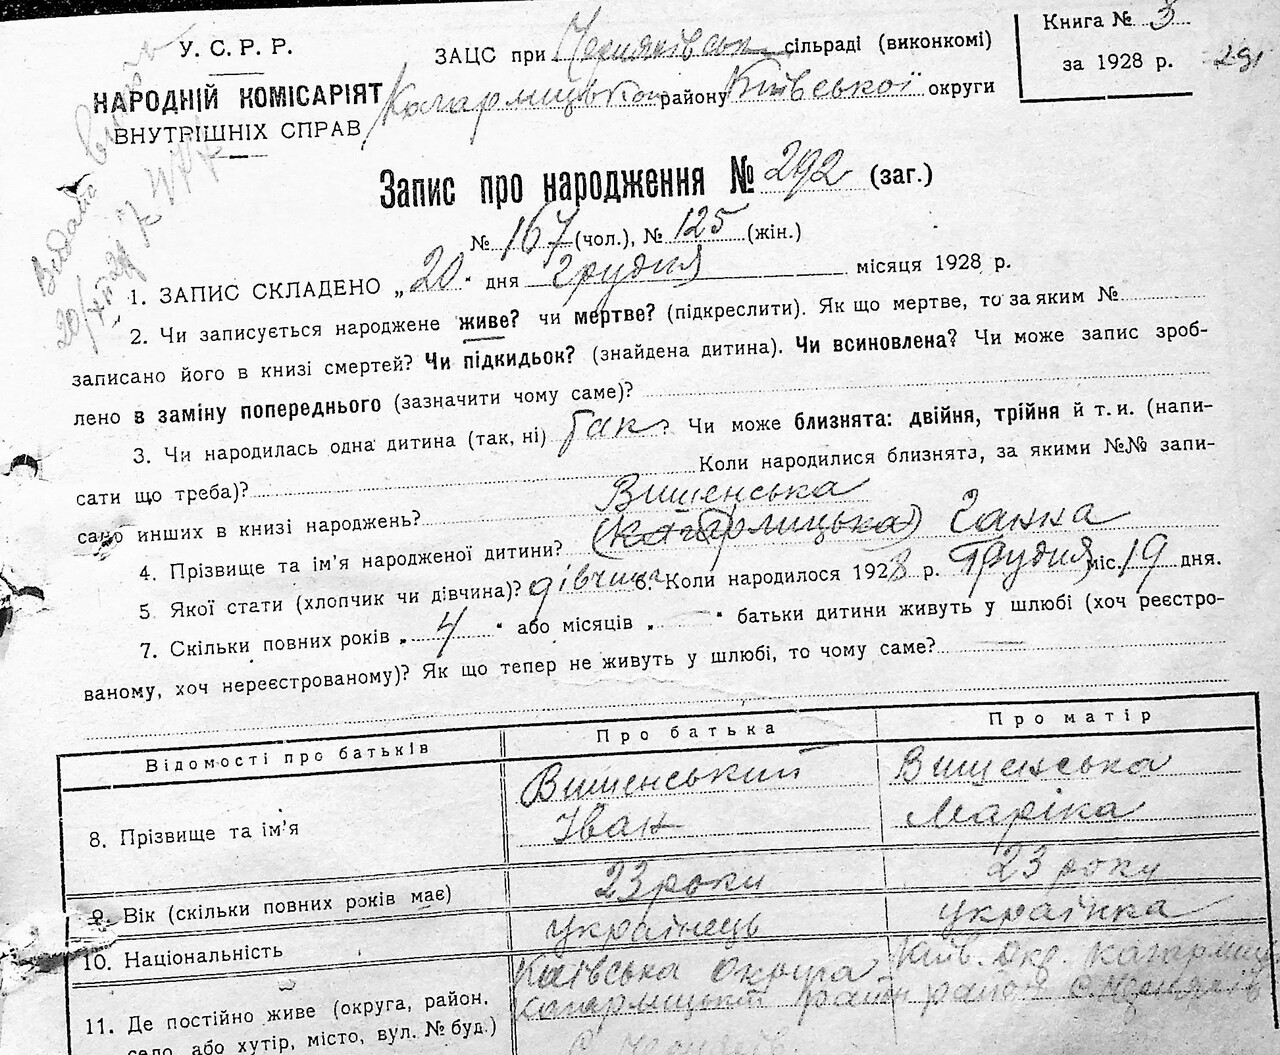 У. С. Р. Р.
НАРОДНІЙ КОМІСАРІЯТ
ВНУТРІШНІХ СПРАВ
ЗАЦС при Черняхівськ сільраді (виконкомі)
Кагарлицької району Київської округи
Книга № 3
за 1928 р.
291
Видано
Запис про народження № 292 (заг.)
№ 167 (чол.), № 125 (жін.)
1. ЗАПИС СКЛАДЕНО „20“ дня Грудня місяця 1928 р.
2. Чи записується народжене живе? чи мертве? (підкреслити). Як що мертве, то за яким №
записано його в книзі смертей? Чи підкидьок? (знайдена дитина). Чи всиновлена? Чи може запис зроб-
лено в заміну попереднього (зазначити чому саме)?
3. Чи народилась одна дитина (так, ні) Так? Чи може близнята: двійня, трійня й т. и. (напи-
сати що треба)? Коли народилися близнята, за якими №№ запи-
сано инших в книзі народжень?
Вишенська
4. Прізвище та ім’я народженої дитини? (Кагарлицька) Ганна
5. Якої стати (хлопчик чи дівчина)? дівчина 6. Коли народилося 1928 р. Грудня міс. 19 дня.
7. Скільки повних років „4“ або місяців „—“ батьки дитини живуть у шлюбі (хоч реєстро-
ваному, хоч нереєстрованому)? Як що тепер не живуть у шлюбі, то чому саме? —
Відомості про батьків Про батька Про матір
8. Прізвище та ім’я Вишенський Іван Вишенська Маріка
9. Вік (скільки повних років має) 23 роки 23 року
10. Національність українець українка
11. Де постійно живе (округа, район, село або хутір, місто, вул. № буд.) Київська округа Кагарлицький район с. Черняхів. Київ. окр. Кагарлиц район с. Черняхів